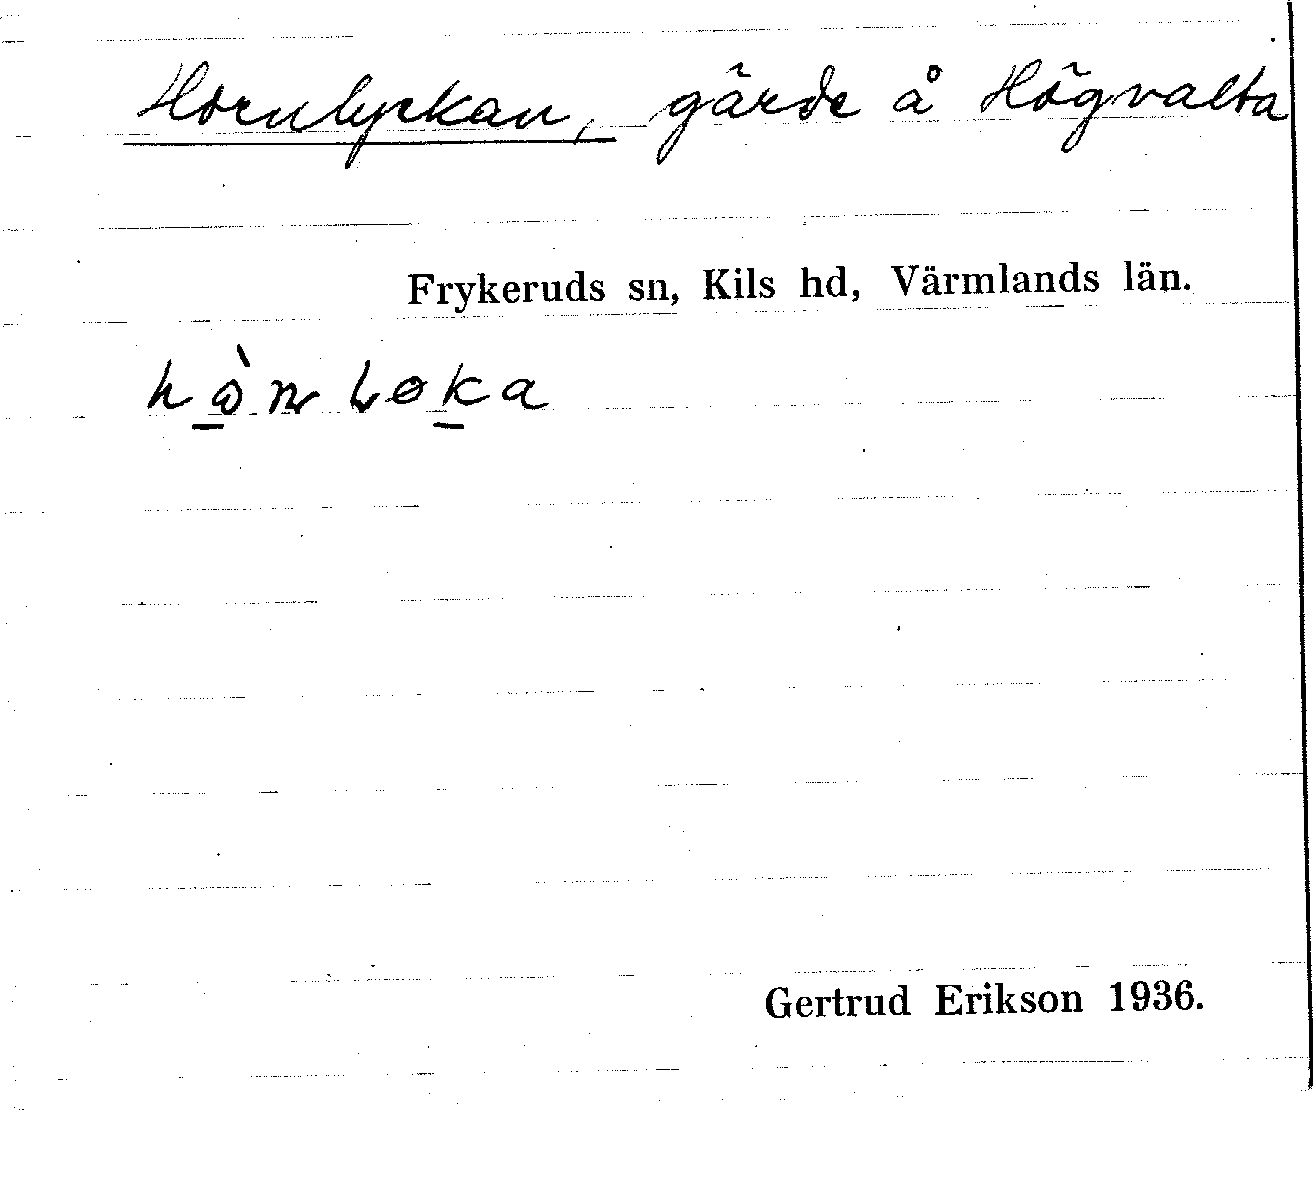 Hornlyckan, gärde å Högvalta
Frykeruds sn, Kils hd, Värmlands län.
Gertrud Erikson 1936.